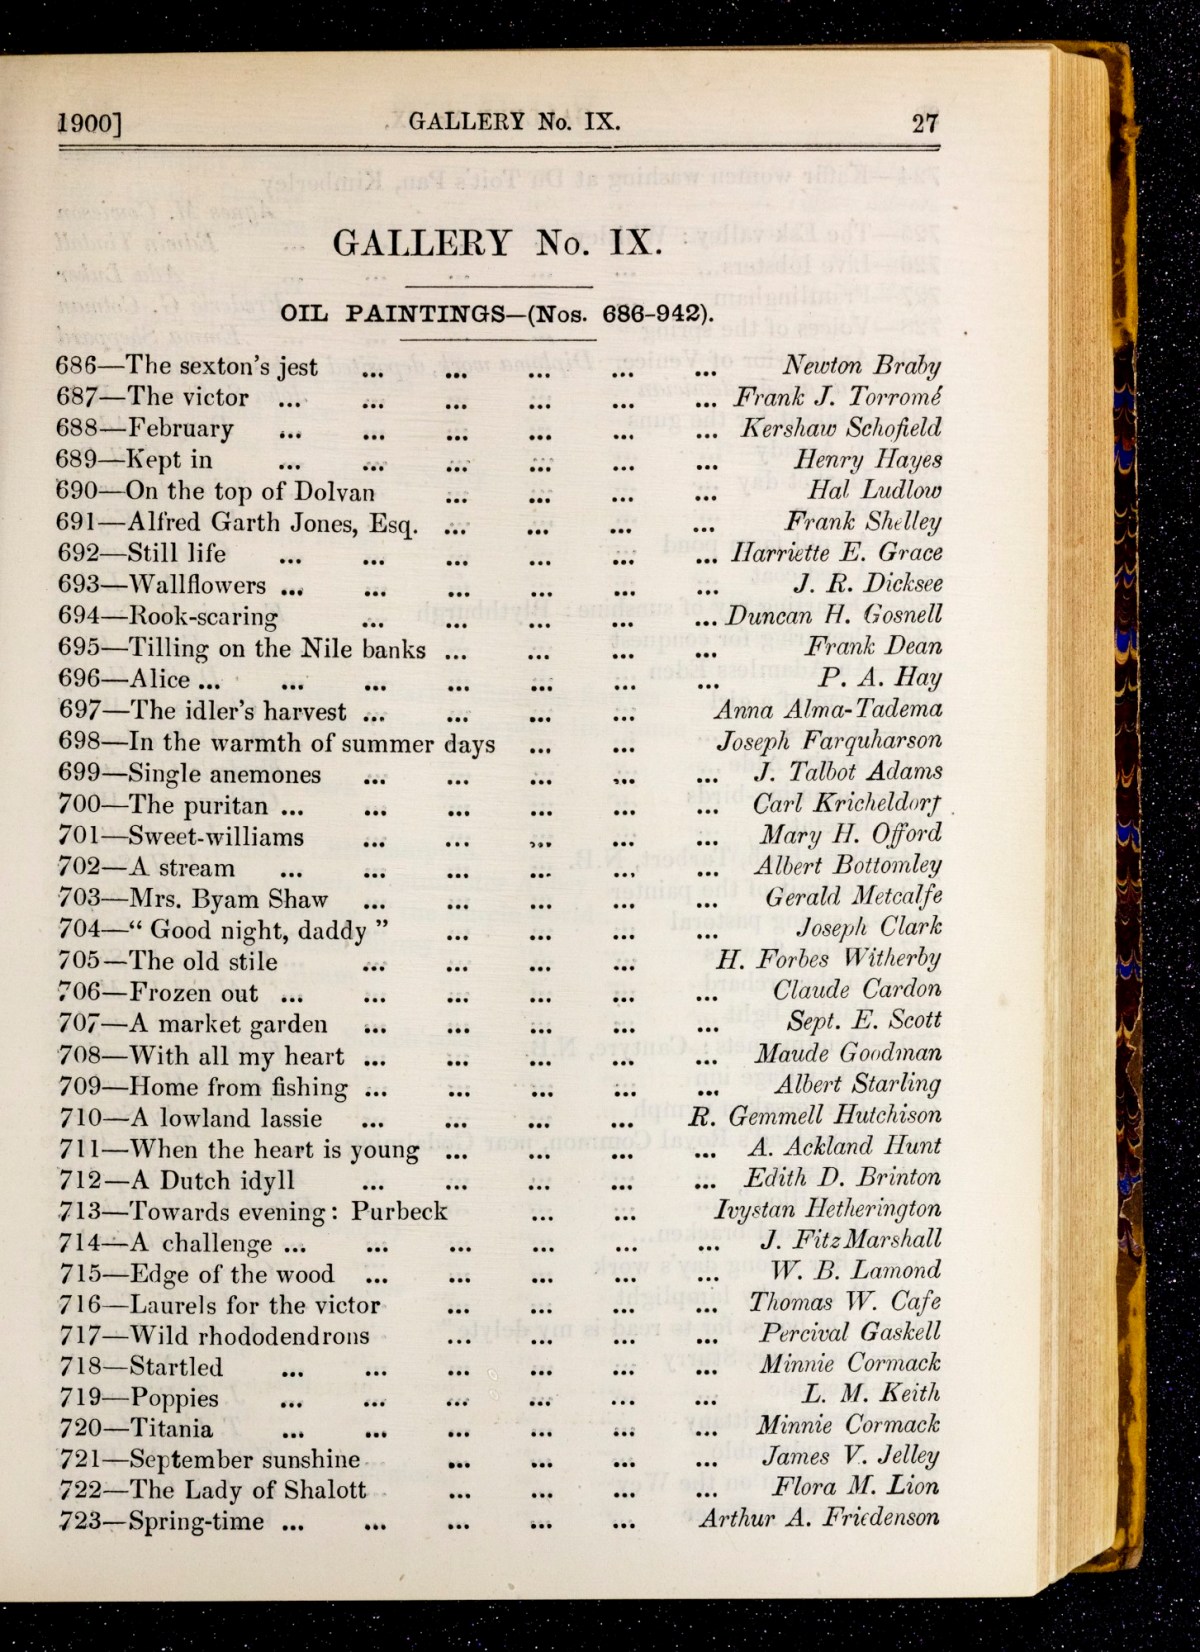 1900] GALLERY No. IX. 27
GALLERY No. IX.
OIL PAINTINGS—(Nos. 686-942).
686—The sexton's jest ... ... ... ... ... Newton Braby
687—The victor ... ... ... ... ... ... Frank J. Torromé
688—February ... ... ... ... ... ... Kershaw Schofield
689—Kept in ... ... ... ... ... ... Henry Hayes
690—On the top of Dolvan ... ... ... ... Hal Ludlow
691—Alfred Garth Jones, Esq. ... ... ... ... Frank Shelley
692—Still life ... ... ... ... ... ... Harriette E. Grace
693—Wallflowers ... ... ... ... ... ... J. R. Dicksee
694—Rook-scaring ... ... ... ... ... Duncan H. Gosnell
695—Tilling on the Nile banks ... ... ... ... Frank Dean
696—Alice ... ... ... ... ... ... ... P. A. Hay
697—The idler's harvest ... ... ... ... Anna Alma-Tadema
698—In the warmth of summer days ... ... Joseph Farquharson
699—Single anemones ... ... ... ... ... J. Talbot Adams
700—The puritan ... ... ... ... ... ... Carl Kricheldorf
701—Sweet-williams ... ... ... ... ... Mary H. Offord
702—A stream ... ... ... ... ... ... Albert Bottomley
703—Mrs. Byam Shaw ... ... ... ... ... Gerald Metcalfe
704—“ Good night, daddy ” ... ... ... ... Joseph Clark
705—The old stile ... ... ... ... H. Forbes Witherby
706—Frozen out ... ... ... ... ... ... Claude Cardon
707—A market garden ... ... ... ... ... Sept. E. Scott
708—With all my heart ... ... ... ... ... Maude Goodman
709—Home from fishing ... ... ... ... ... Albert Starling
710—A lowland lassie ... ... ... ... R. Gemmell Hutchison
711—When the heart is young ... ... ... ... A. Ackland Hunt
712—A Dutch idyll ... ... ... ... ... Edith D. Brinton
713—Towards evening: Purbeck ... ... Ivystan Hetherington
714—A challenge ... ... ... ... ... ... J. FitzMarshall
715—Edge of the wood ... ... ... ... ... W. B. Lamond
716—Laurels for the victor ... ... ... ... Thomas W. Cafe
717—Wild rhododendrons ... ... ... ... Percival Gaskell
718—Startled ... ... ... ... ... ... Minnie Cormack
719—Poppies ... ... ... ... ... ... L. M. Keith
720—Titania ... ... ... ... ... ... Minnie Cormack
721—September sunshine ... ... ... ... James V. Jelley
722—The Lady of Shalott ... ... ... ... Flora M. Lion
723—Spring-time ... ... ... ... ... Arthur A. Friedenson